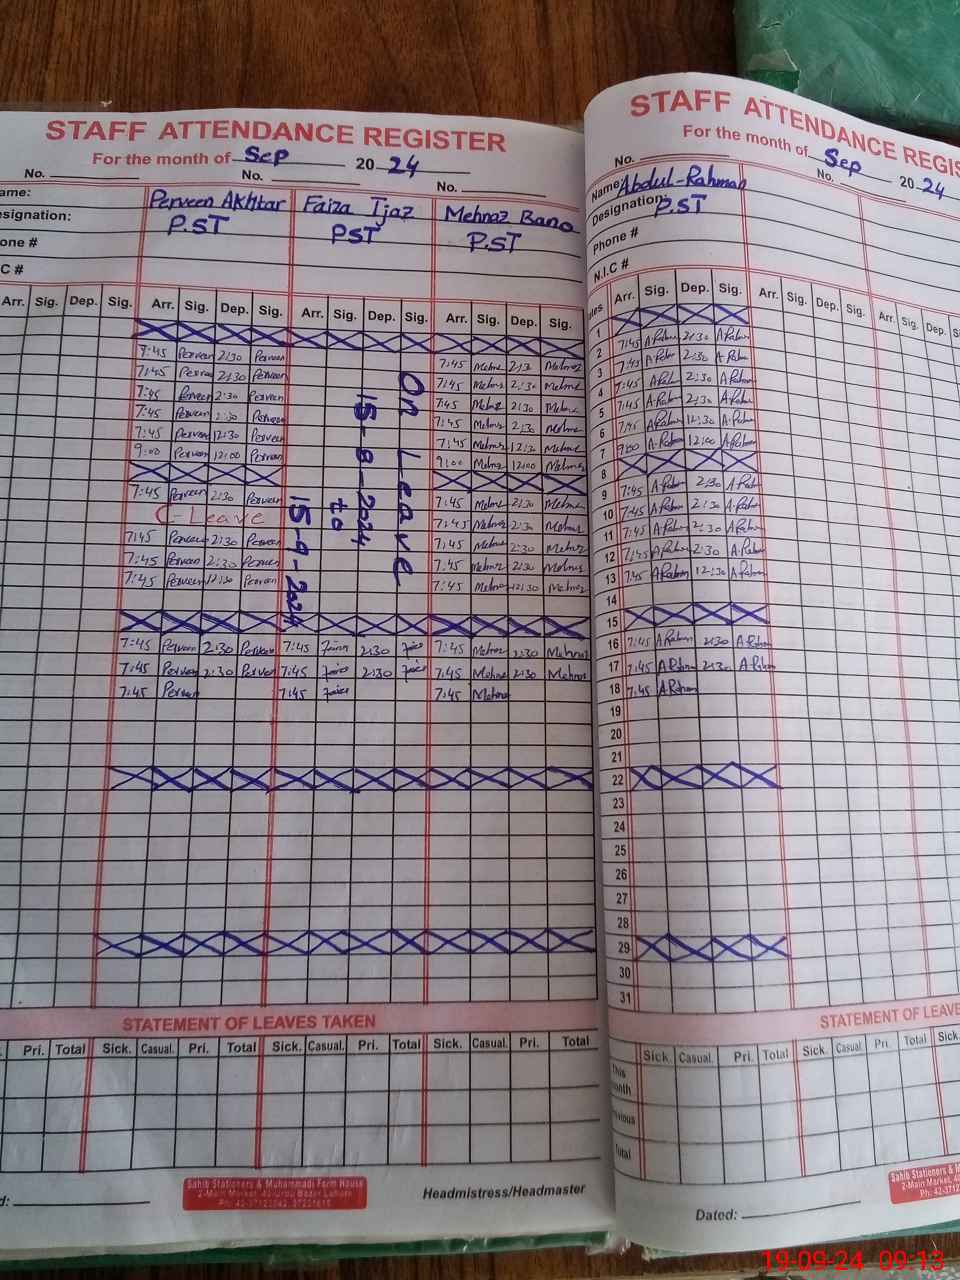 STAFF ATTENDANCE REGISTER
For the month of Sep 20 24
No. No. No.
Perveen Akhtar Faiza Ijaz Mehnaz Bano
esignation: P.ST PST P.ST
one #
C #
Arr. Sig. Dep. Sig. Arr. Sig. Dep. Sig. Arr. Sig. Dep. Sig. Arr. Sig. Dep. Sig.
7:45 Perveen 2:30 Perveen
7:45 Perveen 2:30 Perveen 7:45
7:45 Perveen 2:30 Perveen 7:45 2:30
7:45 Perveen 2:30 Perveen 7:45 2:30
7:45 Perveen 12:30 Perveen 7:45
9:00 Perveen 12:00 Perveen 9:00 12:00
7:45 Perveen 2:30 Perveen 7:45 2:30
C-Leave 7:45 2:30
7:45 Perveen 2:30 Perveen 7:45 2:30
7:45 Perveen 2:30 Perveen 7:45 2:30
7:45 Perveen 12:30 Perveen 7:45 12:30
On Leave
15-8-2024
to
15-9-2024
7:45 Perveen 2:30 Perveen 7:45 2:30 7:45 Mehnaz 2:30 Mehnaz
7:45 Perveen 2:30 Perveen 7:45 2:30 7:45 Mehnaz 2:30 Mehnaz
7:45 Perveen 7:45 7:45 Mehnaz
STATEMENT OF LEAVES TAKEN
Pri. Total Sick. Casual. Pri. Total Sick. Casual. Pri. Total Sick. Casual. Pri. Total
Sahib Stationers & Muhammadi Form House
2-Main Market, 42-Urdu Bazar Lahore
Headmistress/Headmaster
STAFF ATTENDANCE REGIS
For the month of Sep 20 24
No. No.
Name: Abdul-Rahman
Designation: P.ST
Phone #
N.I.C #
Arr. Sig. Dep. Sig. Arr. Sig. Dep. Sig. Arr. Sig. Dep.
1
2 7:45 A.Rahm 2:30 A.Rahm
3 7:45 A.Rahm 2:30 A.Rahm
4 7:45 A.Rahm 2:30 A.Rahm
5 7:45 A.Rahm 2:30 A.Rahm
6 7:45 A.Rahm 12:30 A.Rahm
7 9:00 A.Rahm 12:00 A.Rahm
8
9 7:45 A.Rahm 2:30 A.Rahm
10 7:45 A.Rahm 2:30 A.Rahm
11 7:45 A.Rahm 2:30 A.Rahm
12 7:45 A.Rahm 2:30 A.Rahm
13 7:45 A.Rahm 12:30 A.Rahm
14
15
16 7:45 A.Rahm 2:30 A.Rahm
17 7:45 A.Rahm 2:30 A.Rahm
18 7:45 A.Rahm
19
20
21
22
23
24
25
26
27
28
29
30
31
STATEMENT OF LEAVE
Sick. Casual. Pri. Total Sick. Casual. Pri. Total Sick.
This
onth
Total
Sahib Stationers &
2-Main Market, 4
Ph: 42-3712
Dated:
19-09-24 09:13